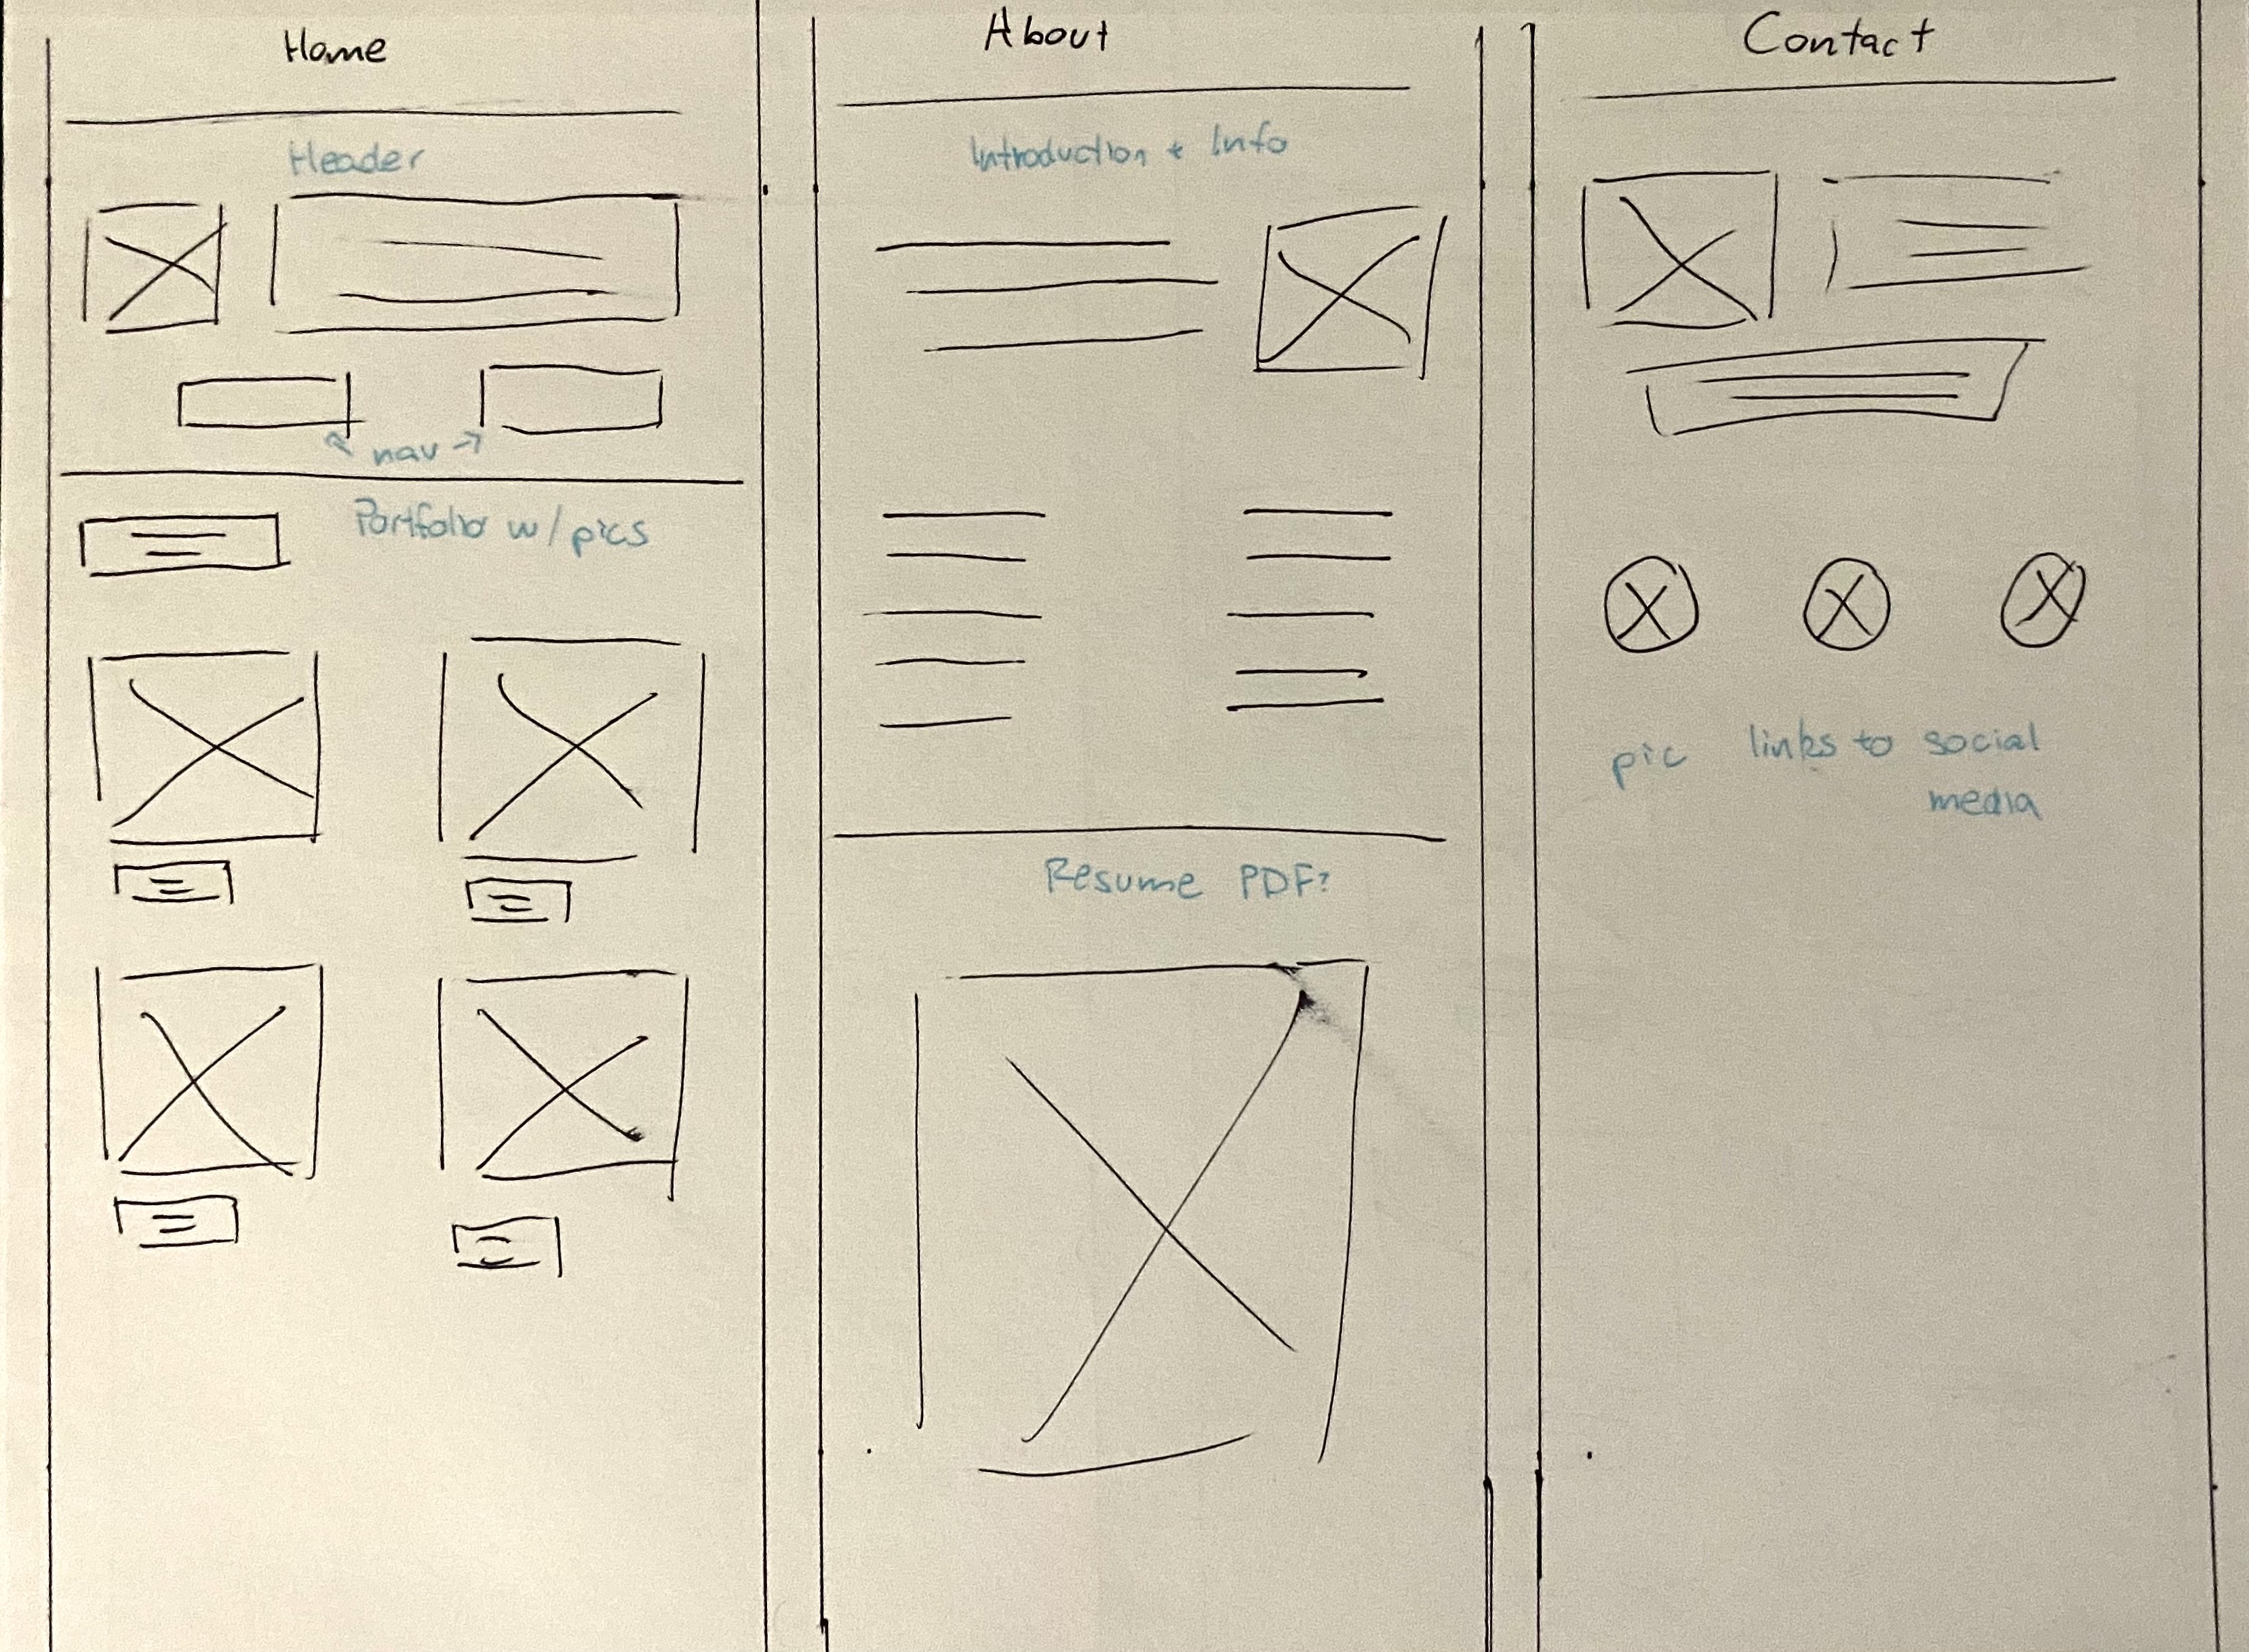 Home
Header
nav
Portfolio w/pics
About
Introduction + Info
Resume PDF?
Contact
pic links to social
media